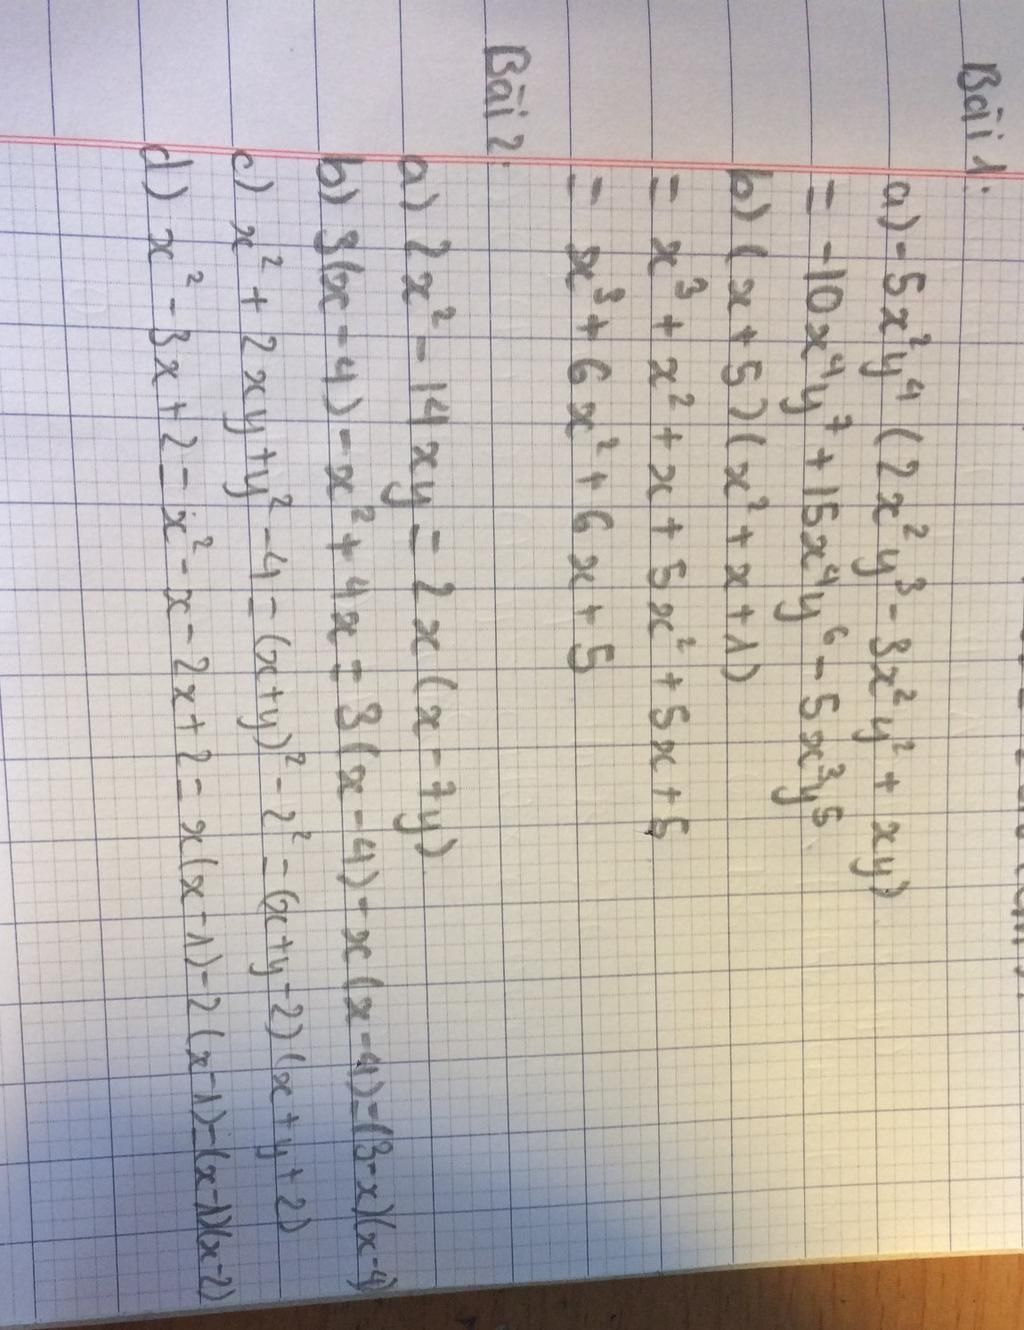 Bài 1:
a) -5x²y⁴ (2x²y³ - 3x²y² + xy)
= -10x⁴y⁷ + 15x⁴y⁶ - 5x³y⁵
b) (x + 5)(x² + x + 1)
= x³ + x² + x + 5x² + 5x + 5
= x³ + 6x² + 6x + 5
Bài 2:
a) 2x² - 14xy = 2x (x - 7y)
b) 3(x - 4) - x² + 4x = 3(x - 4) - x(x - 4) = (3-x)(x-4)
c) x² + 2xy + y² - 4 = (x+y)² - 2² = (x+y-2)(x+y+2)
d) x² - 3x + 2 = x² - x - 2x + 2 = x(x-1) - 2(x-1) = (x-1)(x-2)